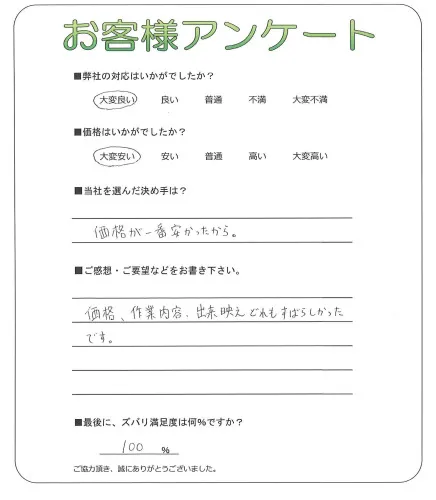 お客様アンケート
■弊社の対応はいかがでしたか？
大変良い 良い 普通 不満 大変不満
■価格はいかがでしたか？
大変安い 安い 普通 高い 大変高い
■当社を選んだ決め手は？
価格が一番安かったから。
■ご感想・ご要望などをお書き下さい。
価格、作業内容、出来映えどれもすばらしかった
です。
■最後に、ズバリ満足度は何％ですか？
100 ％
ご協力頂き、誠にありがとうございました。